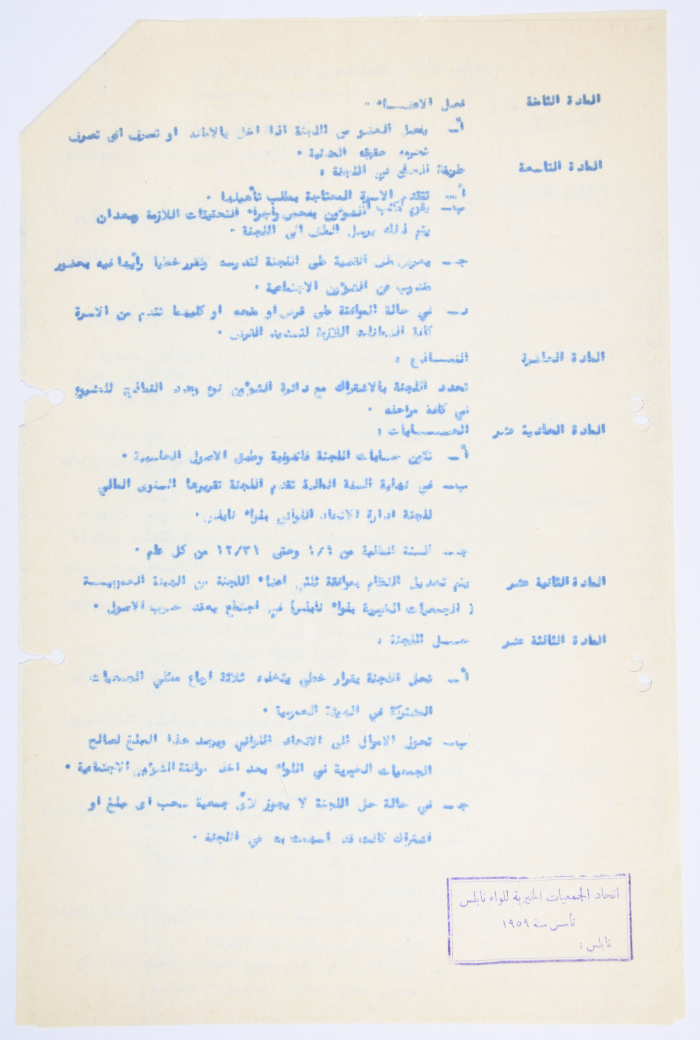 المادة الثامنة فصل الاعضاء .
أ — يفصل العضو من اللجنة اذا اخل بالامانة او تصرف اى تصرف
تحرمه حقوقه المدنية .
المادة التاسعة طريقة العمل في اللجنة :
أ — تتقدم الاسرة المحتاجة بطلب تأهيلها .
ب — يقوم مكتب الشؤون بفحص واجراء التحقيقات اللازمة وبعد ان
يتم ذلك يرسل الطلب الى اللجنة .
ج — يعرض القضية على اللجنة لتدرسه وتقرر خطيا رأيها فيه بحضور
مندوب عن الشؤون الاجتماعية .
د — في حالة الموافقة على قرض او منحه او كليهما تتقدم من الاسرة
كافة الضمانات اللازمة لتسديد القرض .
المادة العاشرة النمـــاذج :
تحدد اللجنة بالاشتراك مع دائرة الشؤون نوع وعدد النماذج للمشروع
في كافة مراحله .
المادة الحادية عشر الحســـابات :
أ — تكون حسابات اللجنة قانونية وطبق الاصول المحاسبية .
ب — في نهاية السنة المالية تقدم اللجنة تقريرها السنوى المالي
للجنة ادارة الاتحاد اللوائي بلواء نابلس .
ج — السنة المالية من ١/١ وحتى ١٢/٣١ من كل عام .
المادة الثانية عشر يتم تعديل النظام بموافقة ثلثي اعضاء اللجنة من الهيئة العموميـــة
( الجمعيات الخيرية بلواء نابلس) في اجتماع يعقد حسب الاصول .
المادة الثالثة عشر حـــل اللجنة :
أ — تحل اللجنة بقرار خطي يتخذه ثلاثة ارباع ممثلي الجمعيات
المشتركة في الهيئة العمومية .
ب — تحول الاموال الى الاتحاد اللوائي ويرصد هذا المبلغ لصالح
الجمعيات الخيرية في اللواء بعد اخذ موافقة الشؤون الاجتماعية .
ج — في حالة حل اللجنة لا يجوز لأى جمعية سحب اى مبلغ او
اشتراك كانت قد اسهمت به في اللجنة .
اتحاد الجمعيات الخيرية للواء نابلس
تأسس سنة ١٩٥٩
نابلس :